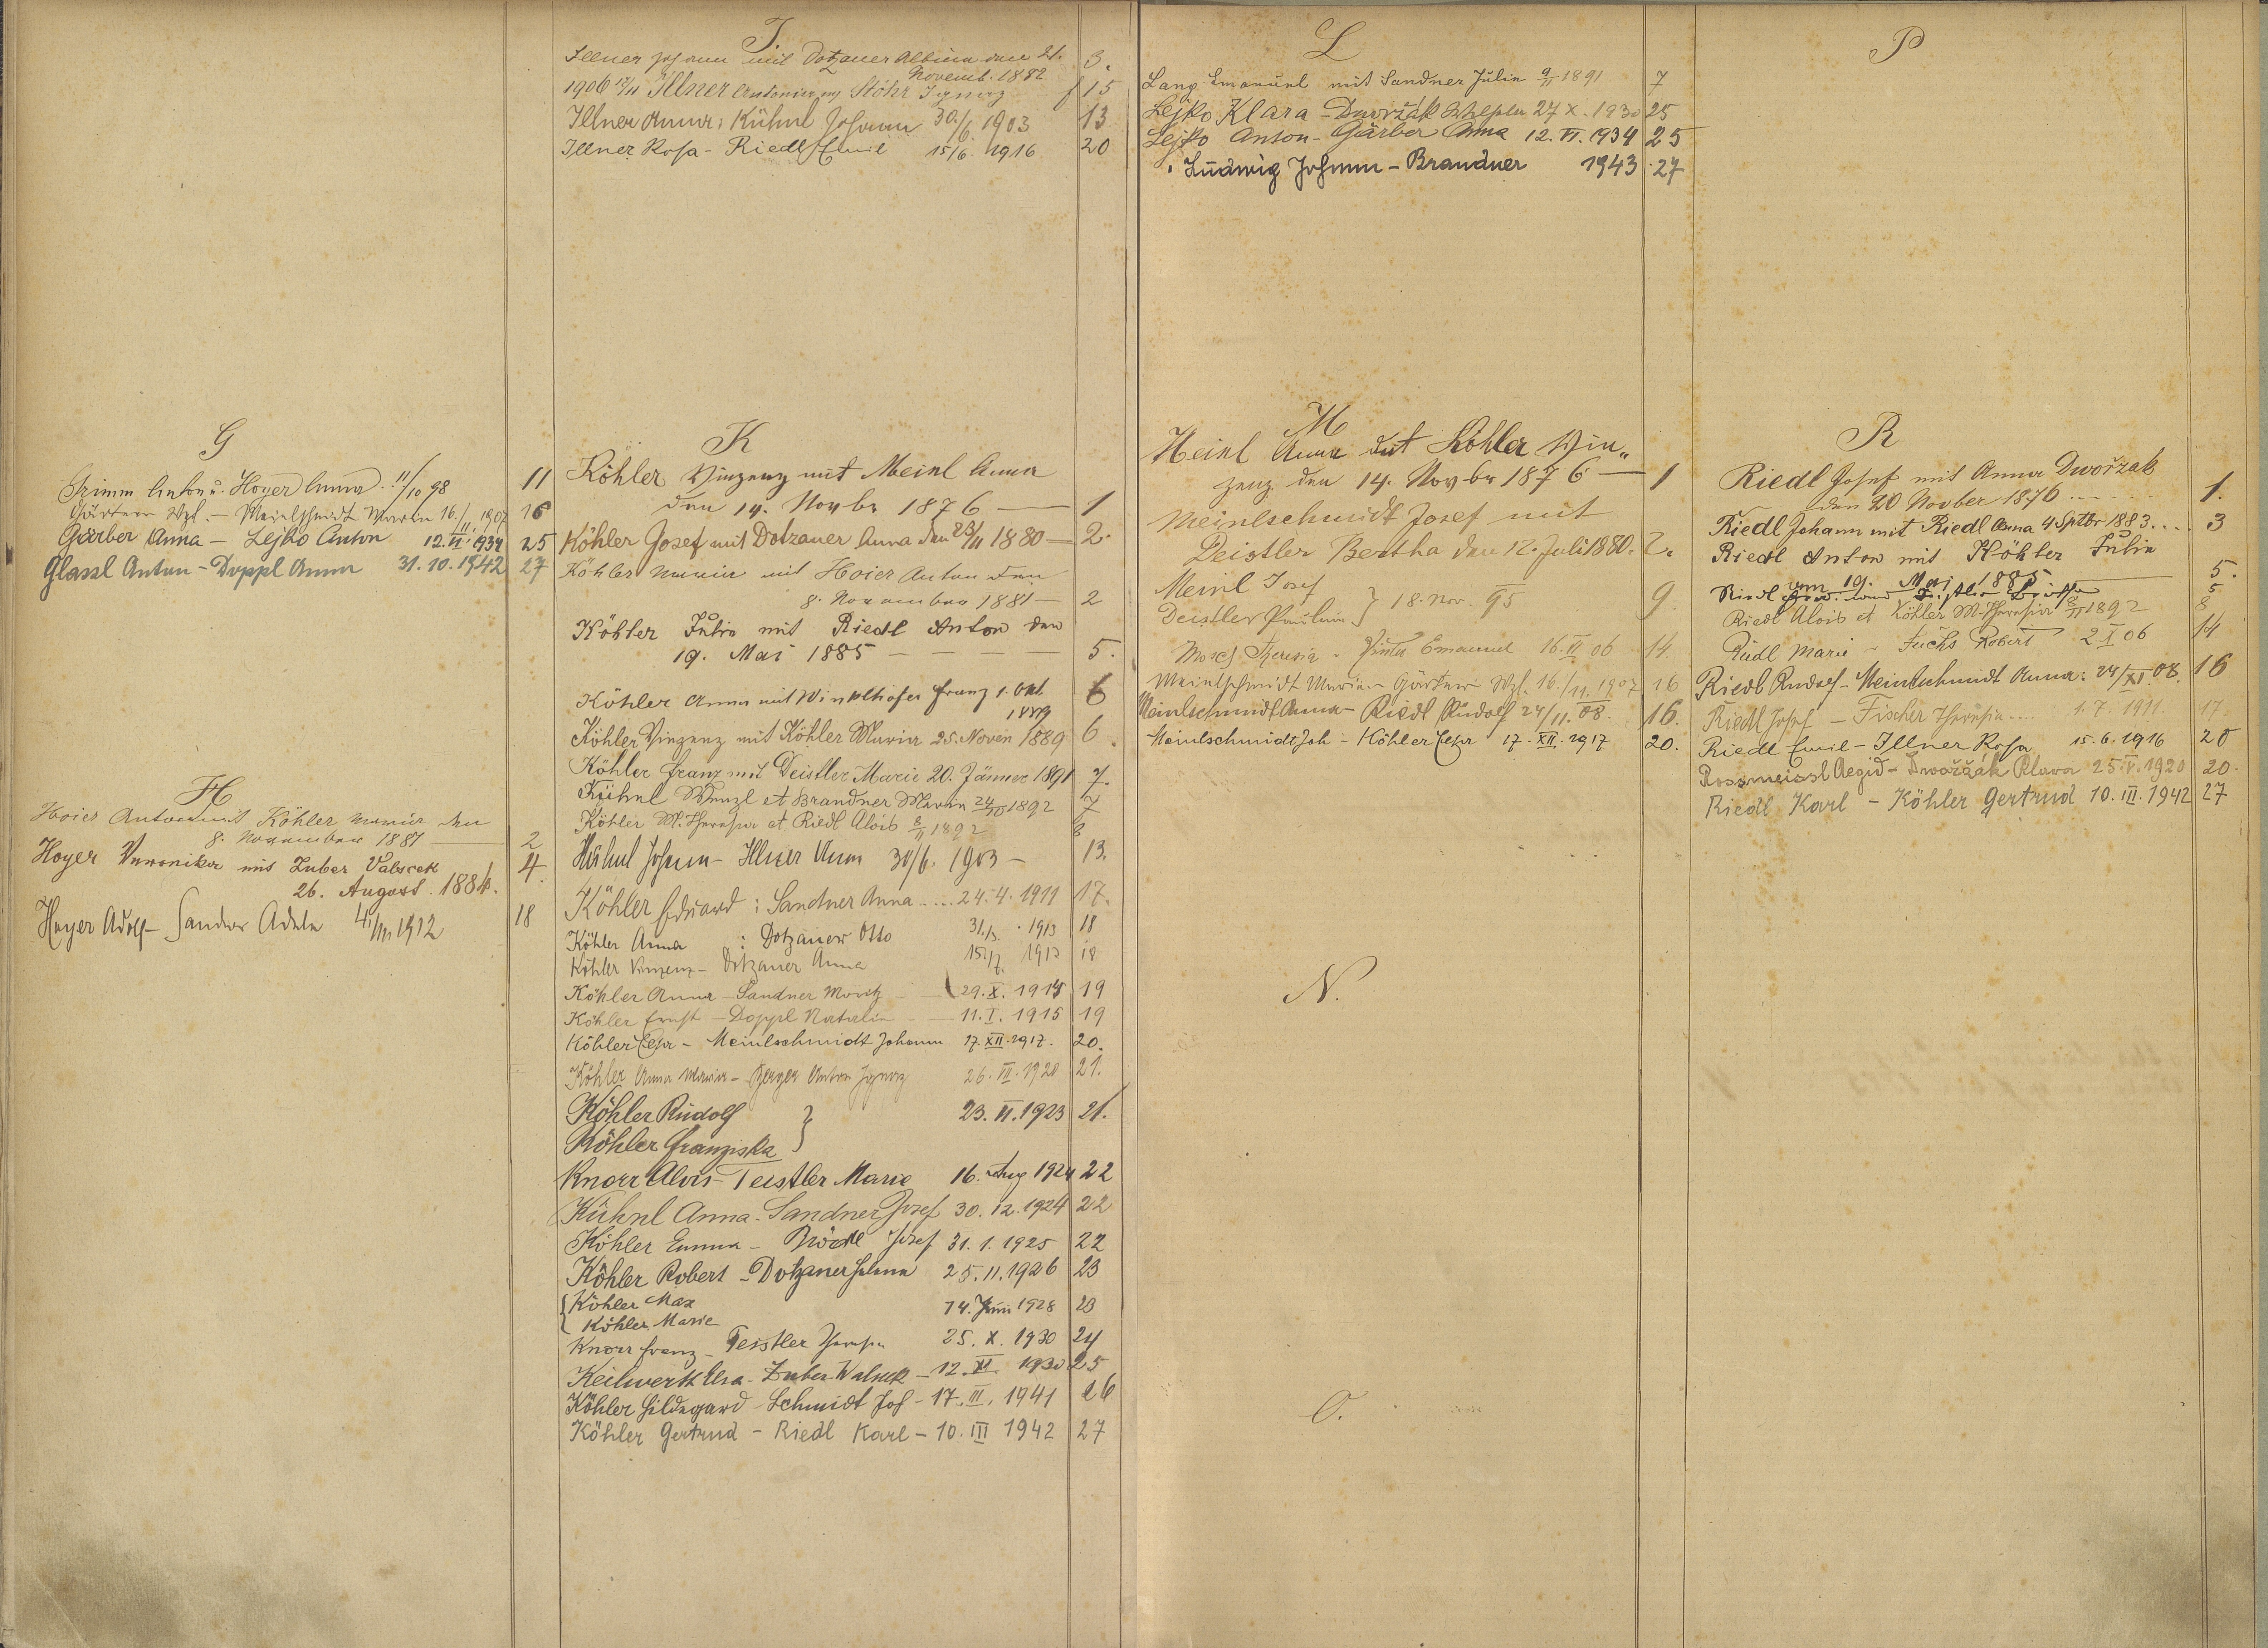 G
Grimm Anton u. Hoyer Anna 11/10 98 11
Gärtner Wzl. – Meinlschmidt Maria 16./II. 1907 16
Gärber Anna – Lejko Anton 12. VI. 1934 25
Glassl Anton – Doppl Anna 31. 10. 1942 27
H
Hoier Anton mit Köhler Maria den
8. November 1881 2
Hoyer Veronika mit Zuber Valscek 4.
26. August 1884.
Hoyer Adolf – Sandner Adele 4./III. 1912 18
I.
Illner Johann mit Dotzauer Albina den 21. 3.
Novemb. 1882
1906 12/11 Illner Antonia Stöhr Ignaz f 15
Illner Anna : Kühnl Johann 30./6. 1903 13
Illner Rosa – Riedl Emil 15/6. 1916 20
K
Köhler Vinzenz mit Meinl Anna
den 14. Novbr 1876 — 1
Köhler Josef mit Dotzauer Anna den 23/11 1880 — 2.
Köhler Maria mit Hoier Anton den
8. November 1881 — 2
Köhler Julie mit Riedl Anton den
19. Mai 1885 — — — — 5.
Köhler Anna mit Winkelhofer Franz 1. Okt. 6
1889
Köhler Vinzenz mit Köhler Maria 25. Noven 1889 6.
Köhler Franz mit Deistler Marie 20. Jänner 1891 7.
Kühnl Wenzl et Brandner Maria 1892 7
Köhler M. Theresia et Riedl Alois 8/II 1892 8
Kühnl Johann – Illner Anna 30/6. 1903 – 13.
Köhler Eduard : Sandner Anna .... 24. 4. 1911 17.
Köhler Anna : Dotzauer Otto 31./3. 1913 18
Köhler Vinzenz – Dotzauer Anna 15./7. 1913 18
Köhler Anna – Sandner Moritz 29. X. 1914 19
Köhler Ernst – Doppl Natalie 11. I. 1915 19
Köhler – Meinlschmidt Johann 17. XII. 1917. 20.
Köhler Anna Maria – Berger Anton Ignaz 26. VII. 1920 21.
Köhler Rudolf } 23. II. 1923 21.
Köhler Franziska
Knorr Alois – Teistler Marie 16. Aug 1924 22
Kühnl Anna – Sandner Josef 30. 12. 1924 22
Köhler Emma – Brödl Josef 31. 1. 1925 22
Köhler Robert – Dotzauer 25. 11. 1926 23
{ Köhler Max 14. Juni 1928 23
Köhler Marie
Knorr Franz – Teistler Theresia 25. X. 1930 24
Keilwerth Elsa – Zuber Walsek – 12. XI. 1930 25
Köhler Hildegard – Schmidt Jos – 17. III. 1941 26
Köhler Gertrud – Riedl Karl – 10. III 1942 27
L
Lang Emanuel mit Sandner Julie 9/II 1891 7
Lejko Klara – Dwořžák 27 X. 1930 25
Lejko Anton – Gärber Anna 12. VI. 1934 25
Ludwig Johann – Brandner 1943 27
M
Meinl Anna mit Köhler Vin„
zenz den 14. Novbr 1876 — 1
Meinlschmidt Josef mit
Deistler Bertha den 12. Juli 1880. 2.
Meinl Josef
Deistler Paulina } 18. Nov. 95 9
Mosch Theresia – Emanuel 16. II 06 14
Meinlschmidt Maria – Gärtner Wzl. 16./II. 1907 16
Meinlschmidt Anna – Riedl Rudolf 24/11. 08 16.
Meinlschmidt Joh – Köhler 17. XII. 1917 20.
N.
O.
P
R
Riedl Josef mit Anna Dwořzak
den 20 Novber 1876 ..... 1.
Riedl Johann mit Riedl Anna 4 Sptbr 1883 ... 3
Riedl Anton mit Köhler Julie
am 19. Mai 1885 5.
Riedl 5
Riedl Alois et Köhler M. Theresia 8/II 1892 8
Riedl Marie – Fuchs Robert 2 I 06 14
Riedl Rudolf – Meinlschmidt Anna : 24/XI. 08. 16
Riedl Josef – Fischer Theresia .... 1. 7. 1911 17
Riedl Emil – Illner Rosa 15. 6. 1916 20
Rossmeissl Aegid – Dwořžák Klara 25. V. 1920 20
Riedl Karl – Köhler Gertrud 10. III. 1942 27